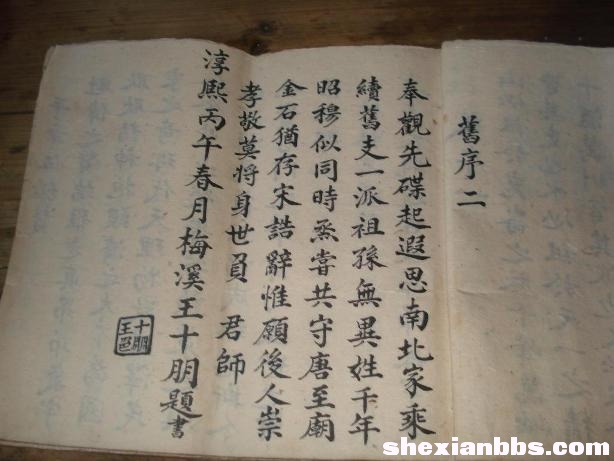 舊序二
奉觀先碟起遐思南北家乘
續舊支一派祖孫無異姓千年
昭穆似同時烝嘗共守唐至廟
金石猶存宋誥辭惟願後人崇
孝敬莫將身世負　君師
淳熙丙午春月梅溪王十朋題書
十朋
王
shexianbbs.com